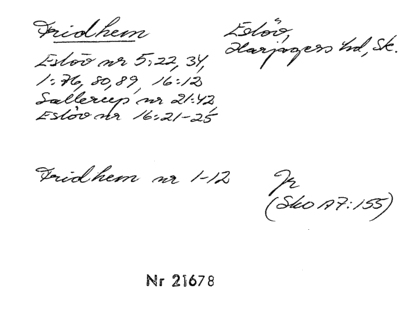 Fridhem
Eslöv,
Harjagers hd, Sk.
Eslöv nr 5:22, 34,
1:76, 80, 89, 16:12
Sallerup nr 21:42,
Eslöv nr 16:21-25
Fridhem nr 1-12
Jr
(Sko A7:155)
Nr 21678